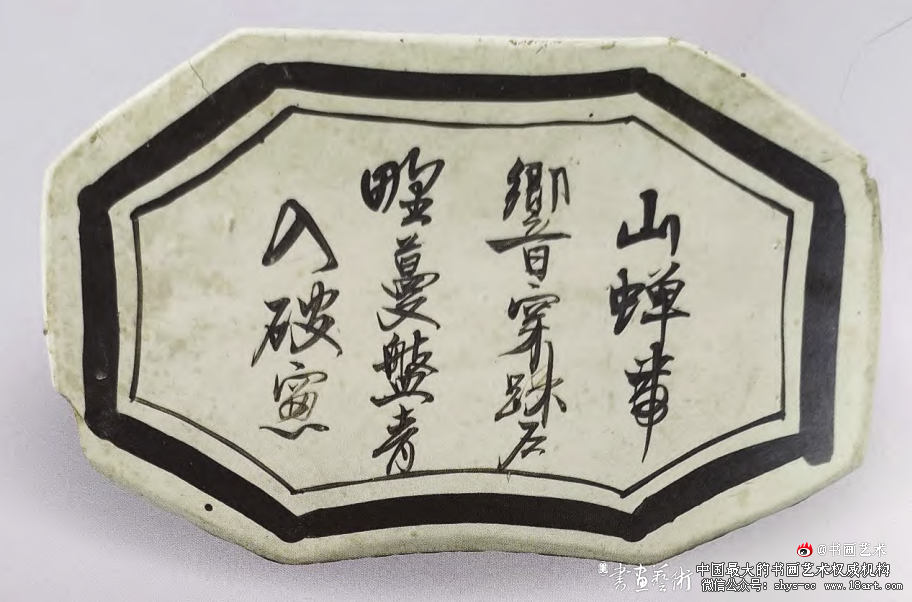 山蝉帶
響穿踈户
野蔓盤青
入破窓
@书画艺术
書畫藝術
中国最大的书画艺术权威机构
微信公众号: shys-cc www.18art.com